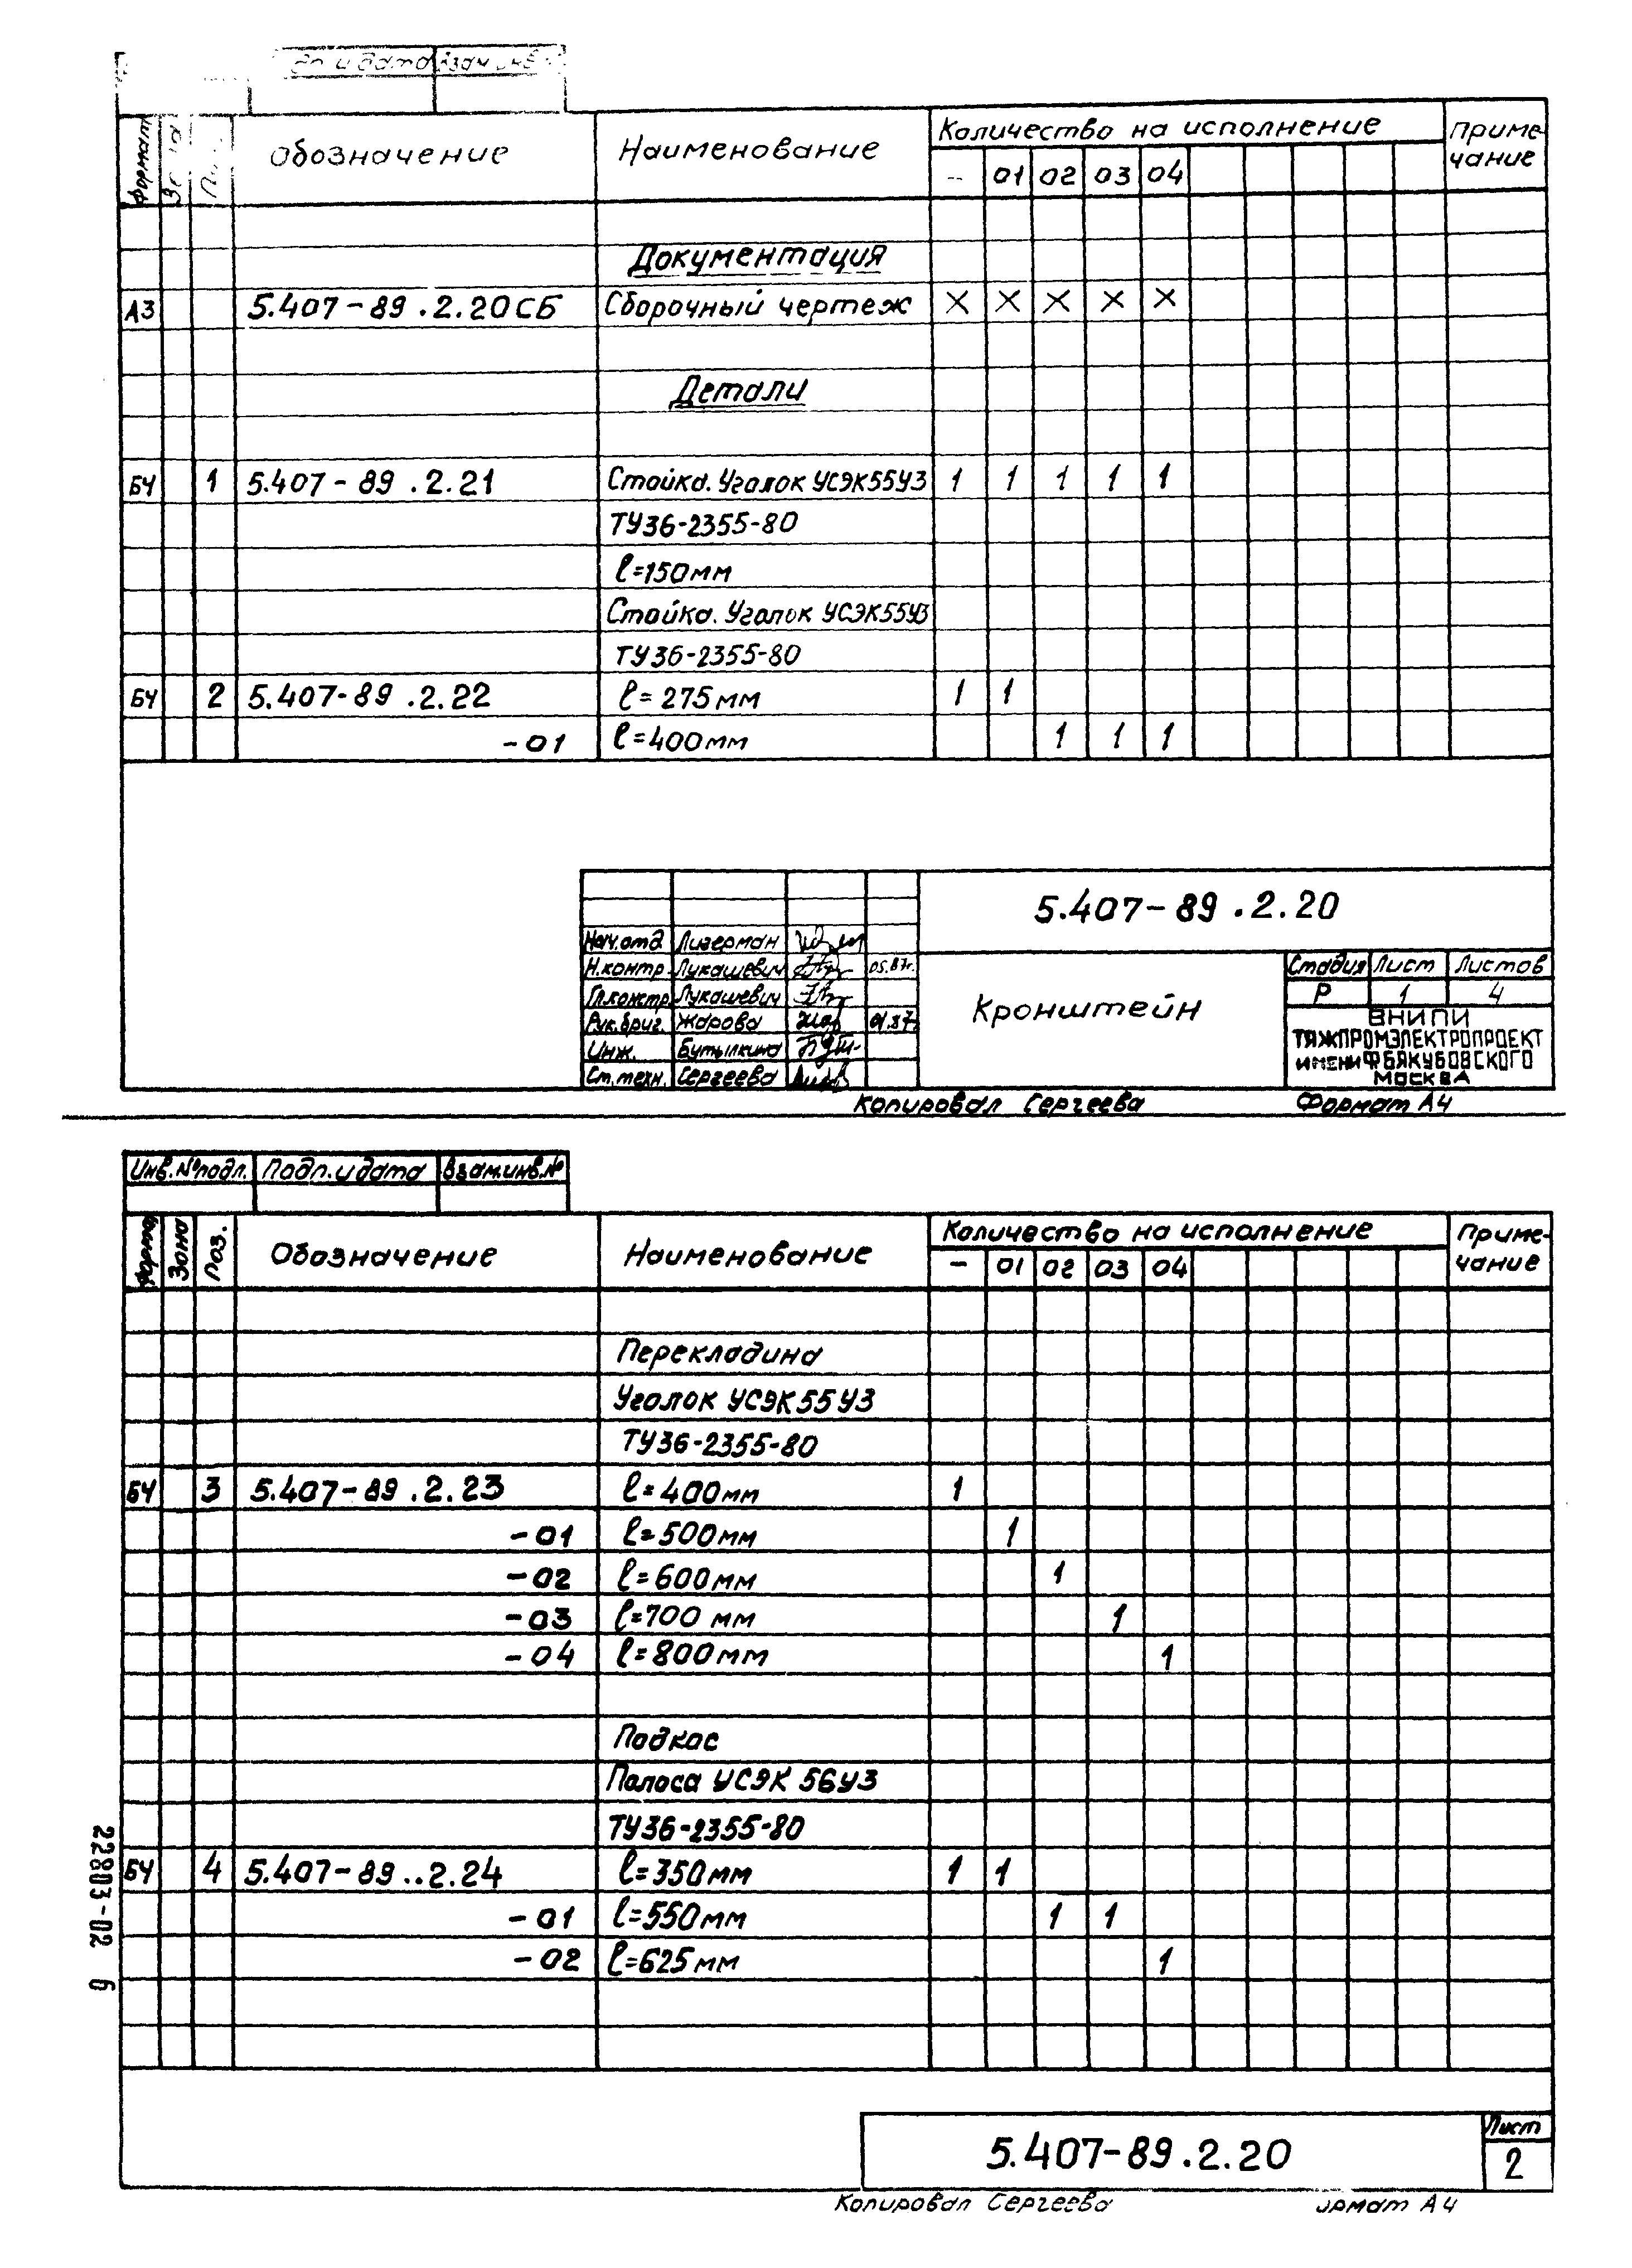 дп. и дата Взам инв
Формат Обозначение Наименование Количество на исполнение Приме-
чание
– 01 02 03 04
Документация
А3 5.407-89.2.20СБ Сборочный чертеж X X X X X
Детали
БЧ 1 5.407-89.2.21 Стойка. Уголок УСЭК55У3 1 1 1 1 1
ТУ36-2355-80
ℓ=150мм
Стойка. Уголок УСЭК55У3
ТУ36-2355-80
БЧ 2 5.407-89.2.22 ℓ=275мм 1 1
-01 ℓ=400мм 1 1 1
5.407-89.2.20
Нач.отд Лизерман
Н.контр Лукашевич 05.87г.
Гл.констр Лукашевич
Рук.бриг. Жарова 01.87
Инж. Бутылкина
Ст.техн. Сергеева
Кронштейн
Стадия Лист Листов
Р 1 4
ВНИПИ
ТЯЖПРОМЭЛЕКТРОПРОЕКТ
ИМЕНИ Ф.Б.ЯКУБОВСКОГО
МОСКВА
Копировал Сергеева Формат А4
Инв.№подл. Подп.и дата Взам.инв.№
Формат Зона Поз. Обозначение Наименование Количество на исполнение Приме-
чание
– 01 02 03 04
Перекладина
Уголок УСЭК55У3
ТУ36-2355-80
БЧ 3 5.407-89.2.23 ℓ=400мм 1
-01 ℓ=500мм 1
-02 ℓ=600мм 1
-03 ℓ=700 мм 1
-04 ℓ=800мм 1
Подкос
Полоса УСЭК 56У3
ТУ36-2355-80
БЧ 4 5.407-89..2.24 ℓ=350мм 1 1
-01 ℓ=550мм 1 1
-02 ℓ=625мм 1
22803-02 6
5.407-89.2.20
Лист
2
Копировал Сергеева ормат А4